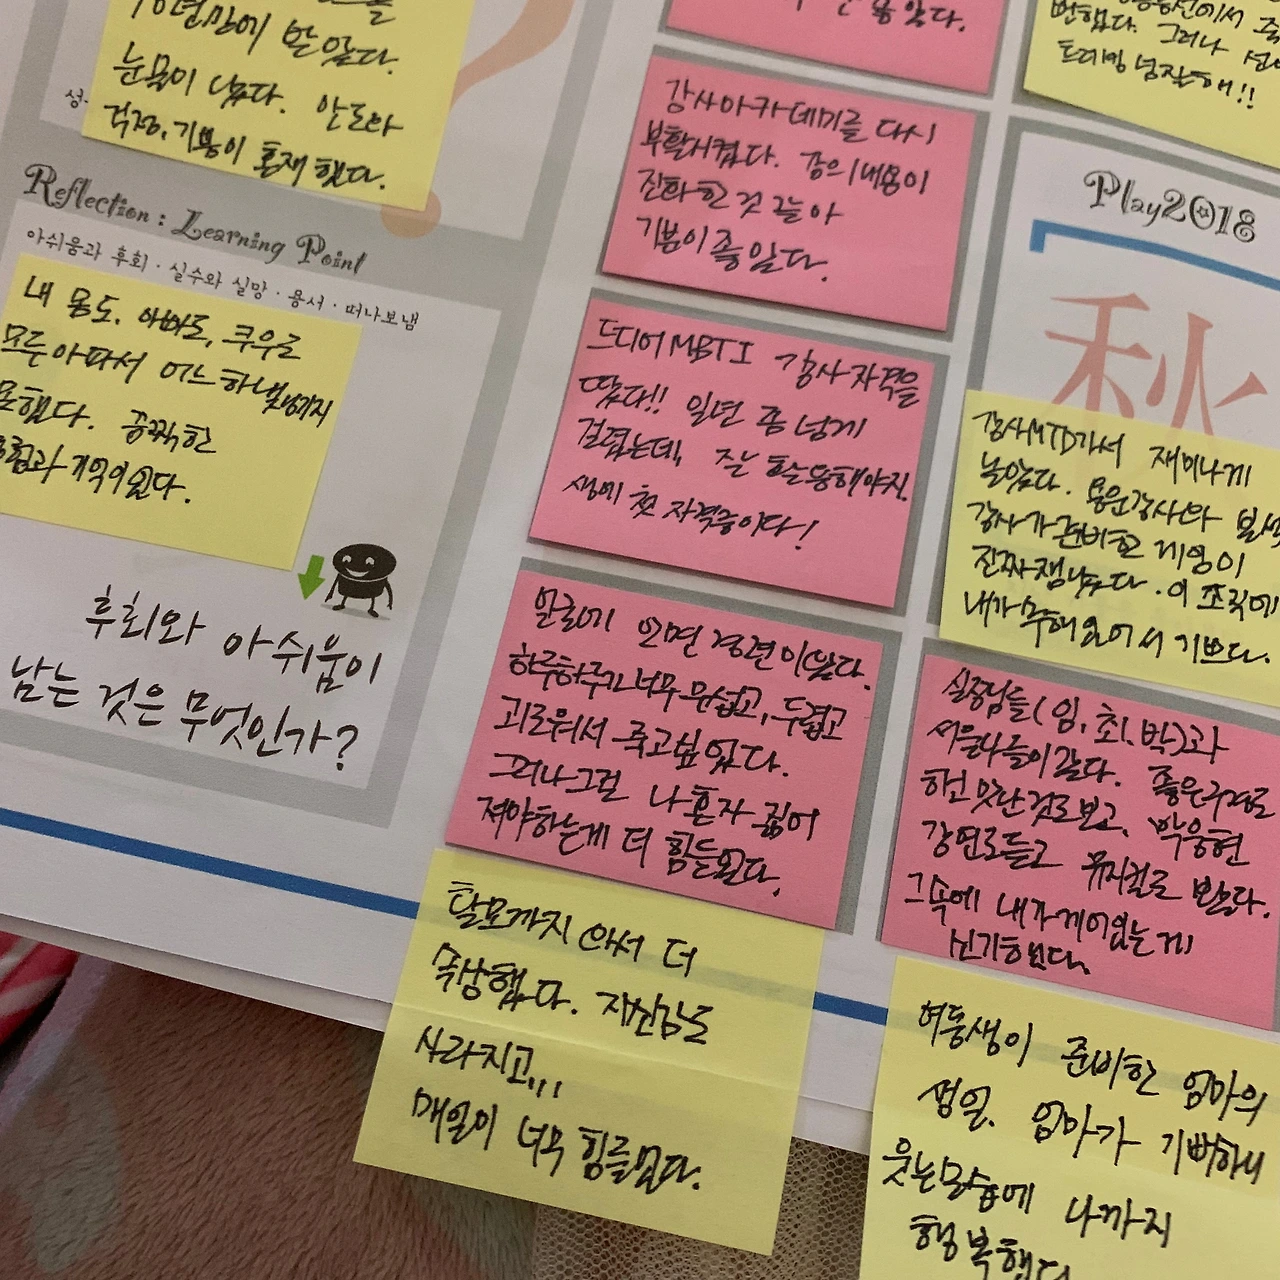 눈물이 났다. 안도와
걱정, 기쁨이 혼재했다.
Reflection : Learning Point
아쉬움과 후회 · 실수와 실망 · 용서 · 떠나보냄
내 몸도, 아빠도, 쿠우로
모두 아파서 어느 하나
못했다. 끔찍한
기억이 있다.
후회와 아쉬움이
남는 것은 무엇인가?
감사아카데미를 다시
부활시켰다. 강의내용이
진화한 것 같아
기분이 좋았다.
드디어 MBTI 강사자격을
땄다!! 일년 좀 넘게
걸렸는데, 잘 활용해야지.
생애 첫 자격증이다!
하루하루가 너무 무섭고, 두렵고
괴로워서 죽고 싶었다.
그러나 그걸 나 혼자 짊어
져야하는게 더 힘들었다.
탈모까지 와서 더
속상했다. 자신감도
사라지고,,,
매일이 너무 힘들었다.
Play2018
秋
강사MTD가서 재미나게
놀았다.
강사가 준비한 게임이
진짜 잼났다. 이 조직에
내가 속해 있어서 기쁘다.
실장님들(임, 최, 박)과
서울나들이 갔다. 좋은구경도
하고 맛난것도 보고, 박웅현
강연도 듣고 뮤지컬도 봤다.
그속에 내가 게 있는게
신기했다.
여동생이 준비한 엄마의
생일. 엄마가 기뻐하니
웃는모습에 나까지
행복했다